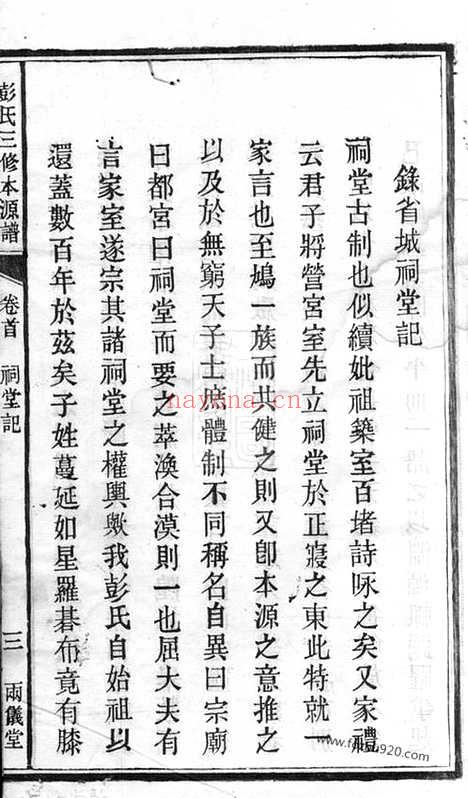 錄省城祠堂記
祠堂古制也似續妣祖築室百堵詩咏之矣又家禮
云君子將營宮室先立祠堂於正寢之東此特就一
家言也至鳩一族而共健之則又卽本源之意推之
以及於無窮天子士庶體制不同稱名自異曰宗廟
曰都宮曰祠堂而要之萃渙合漠則一也屈大夫有
言家室遂宗其諸祠堂之權輿歟我彭氏自始祖以
還蓋數百年於茲矣子姓蔓延如星羅碁布竟有膝
彭氏三修本源譜
卷首 祠堂記
三 兩儀堂
nayona.cn
www.fojiao920.com